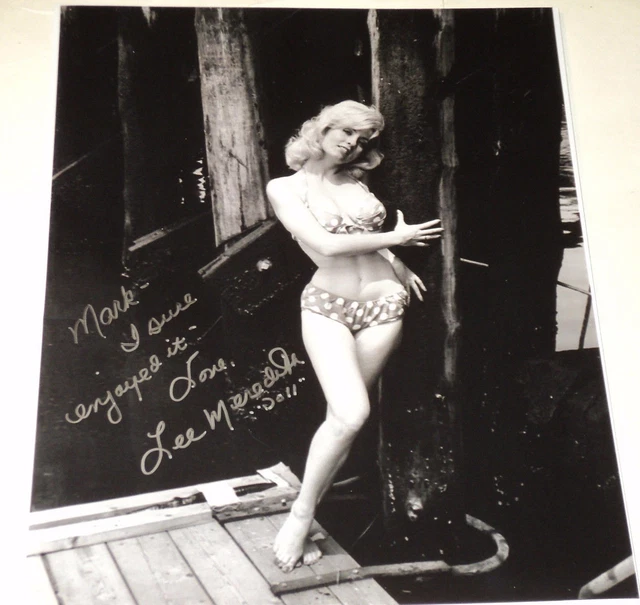 Mark-
I sure
enjoyed it-
Love,
Lee Meredith
"Doll"